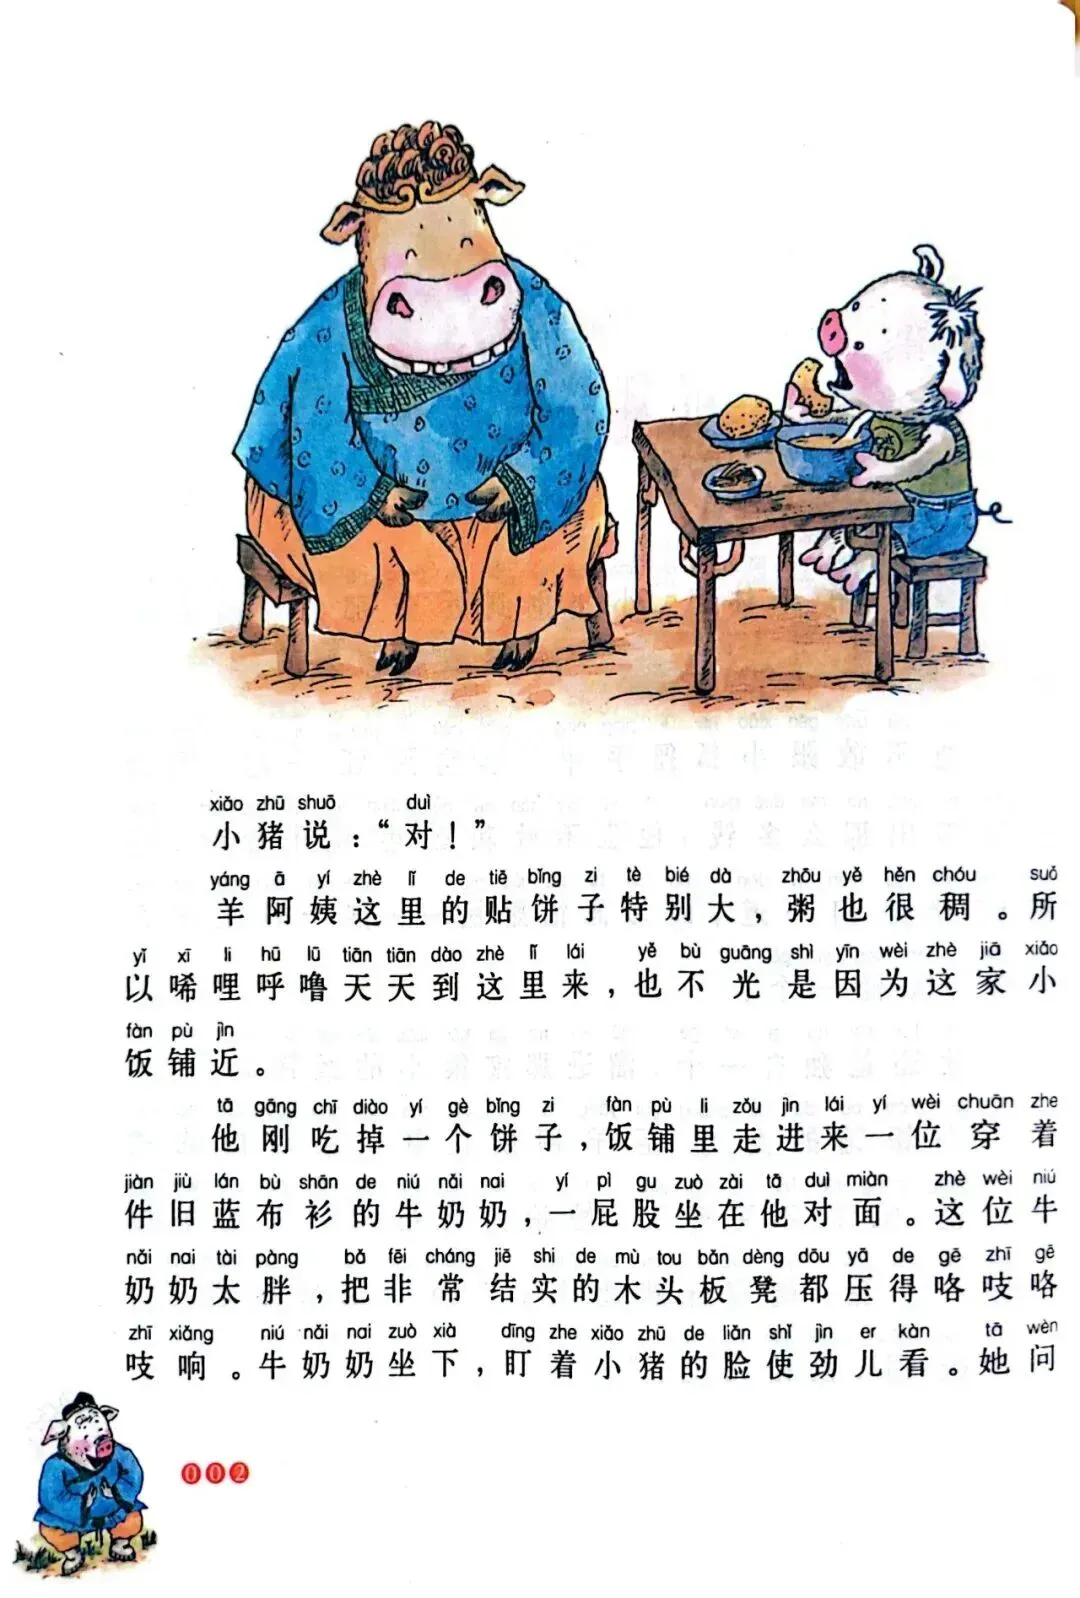 xiǎo zhū shuō duì
小猪说：“对！”
yáng ā yí zhè lǐ de tiē bǐng zi tè bié dà zhōu yě hěn chóu suǒ
羊阿姨这里的贴饼子特别大，粥也很稠。所
yǐ xī li hū lū tiān tiān dào zhè lǐ lái yě bù guāng shì yīn wèi zhè jiā xiǎo
以唏哩呼噜天天到这里来，也不光是因为这家小
fàn pù jìn
饭铺近。
tā gāng chī diào yí gè bǐng zi fàn pù li zǒu jìn lái yí wèi chuān zhe
他刚吃掉一个饼子，饭铺里走进来一位穿着
jiàn jiù lán bù shān de niú nǎi nai yí pì gu zuò zài tā duì miàn zhè wèi niú
件旧蓝布衫的牛奶奶，一屁股坐在他对面。这位牛
nǎi nai tài pàng bǎ fēi cháng jiē shi de mù tou bǎn dèng dōu yā de gē zhī gē
奶奶太胖，把非常结实的木头板凳都压得咯吱咯
zhī xiǎng niú nǎi nai zuò xià dīng zhe xiǎo zhū de liǎn shǐ jìn er kàn tā wèn
吱响。牛奶奶坐下，盯着小猪的脸使劲儿看。她问
002